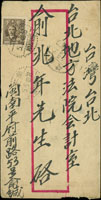 台灣台北
台北地方法院会計室
俞兆年先生啓
閩南平府前路53号俞緘